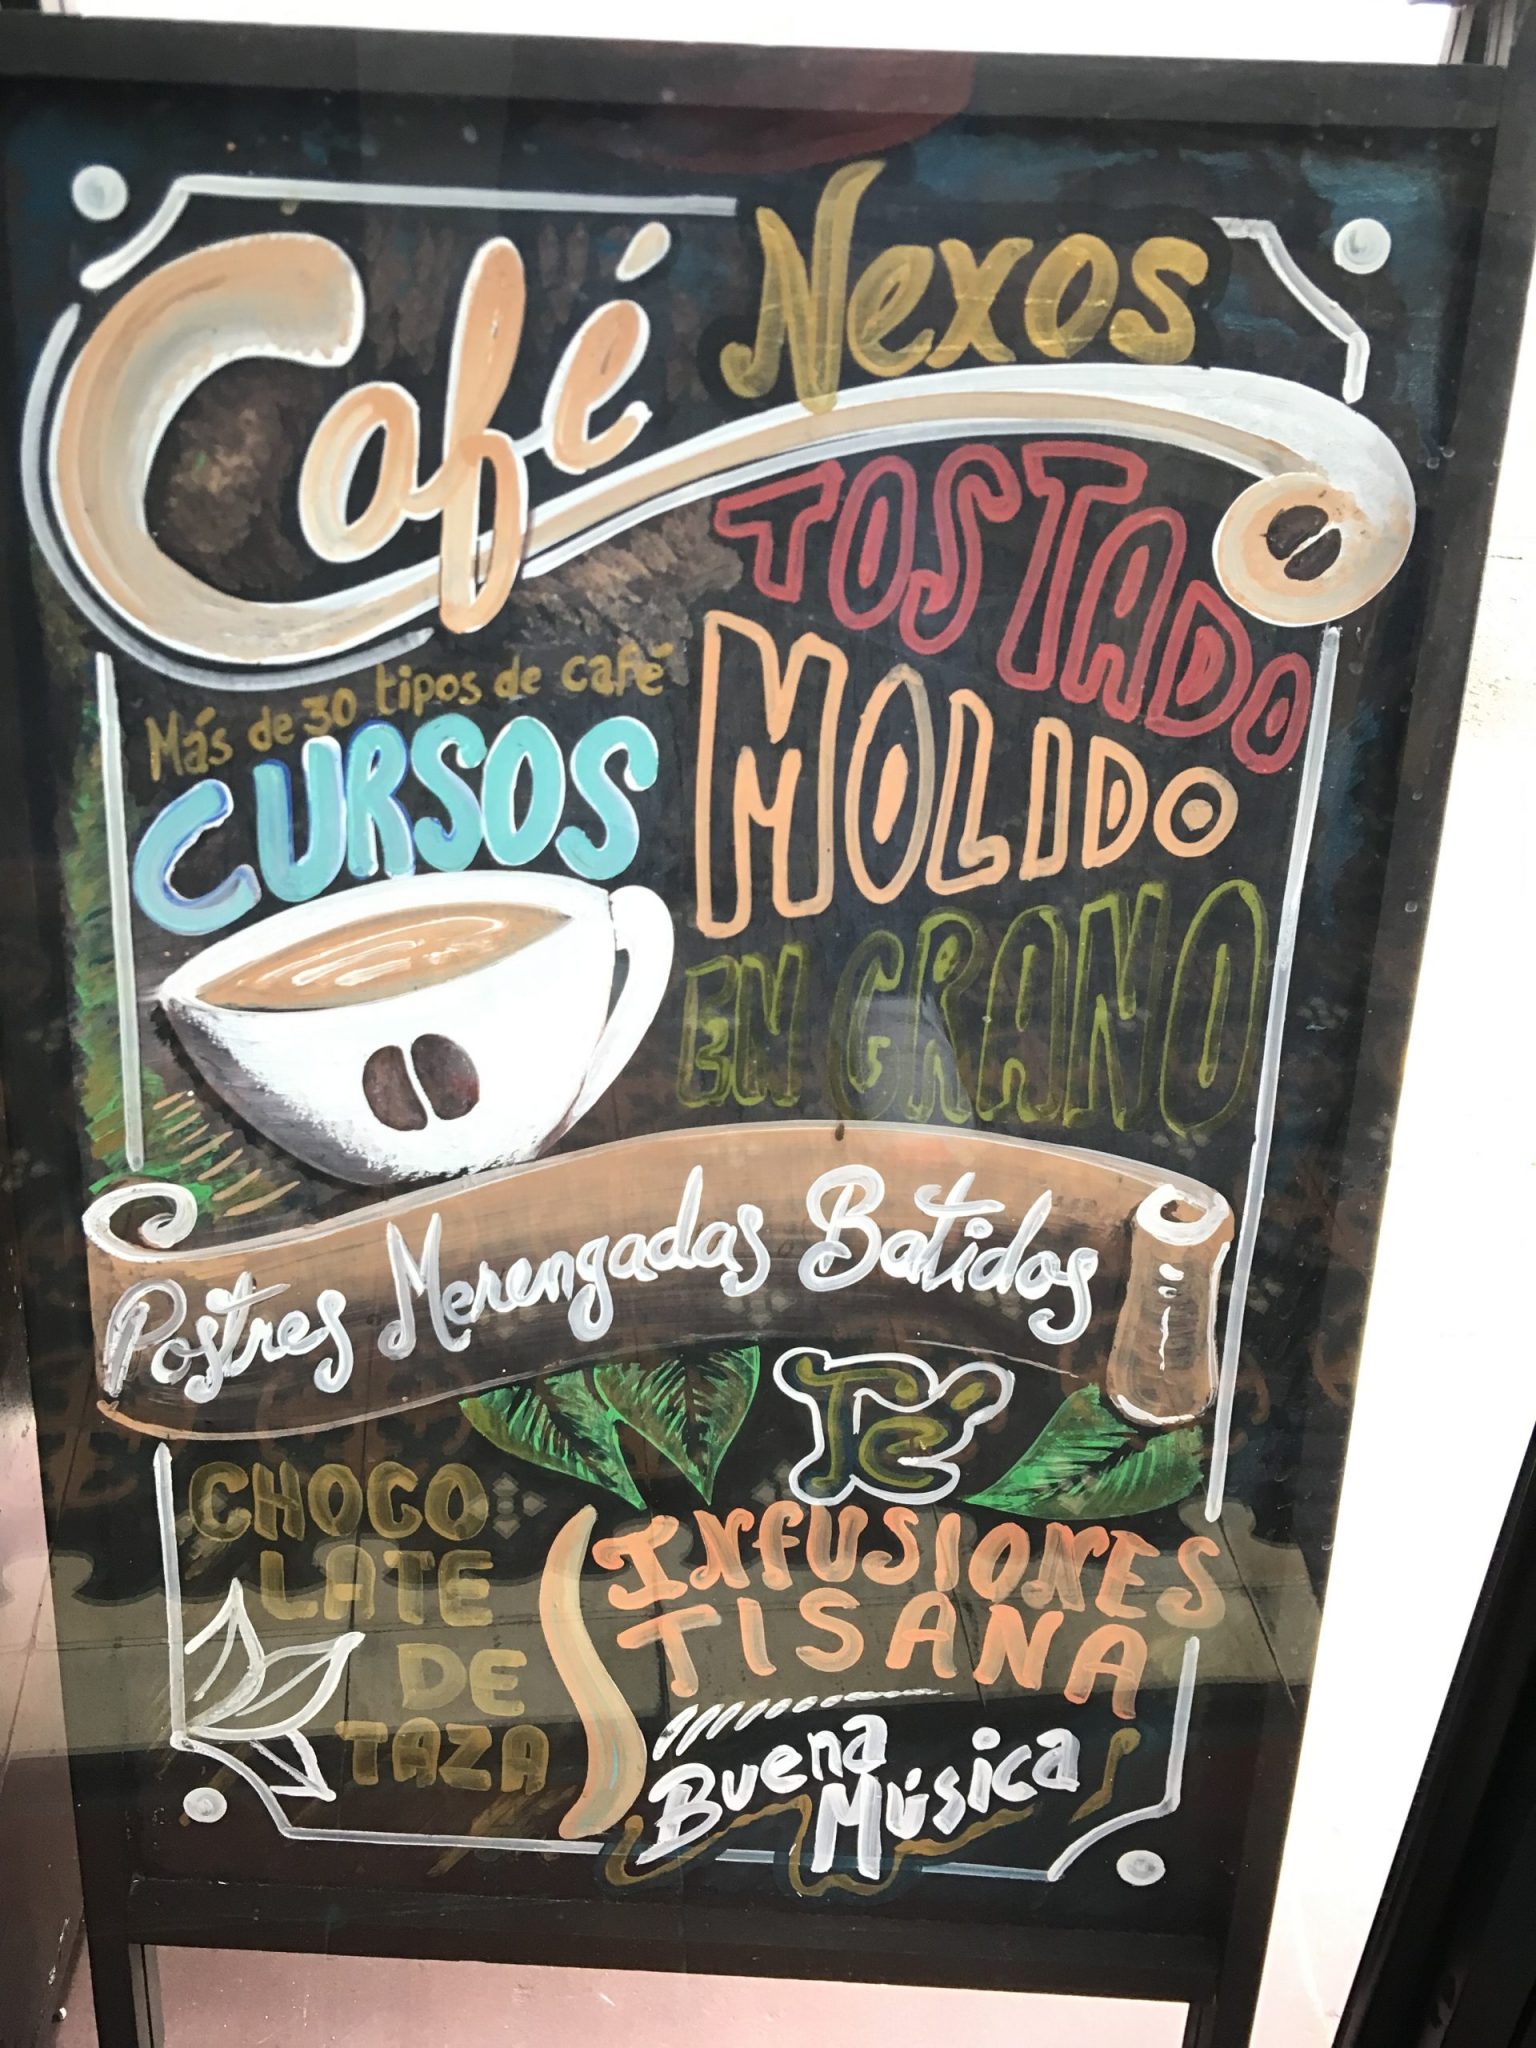 Café Nexos
TOSTADO
Más de 30 tipos de café
CURSOS
MOLIDO
EN GRANO
Postres Merengadas Batidos
Té
CHOCO
LATE
DE
TAZA
INFUSIONES
TISANA
Buena
Música